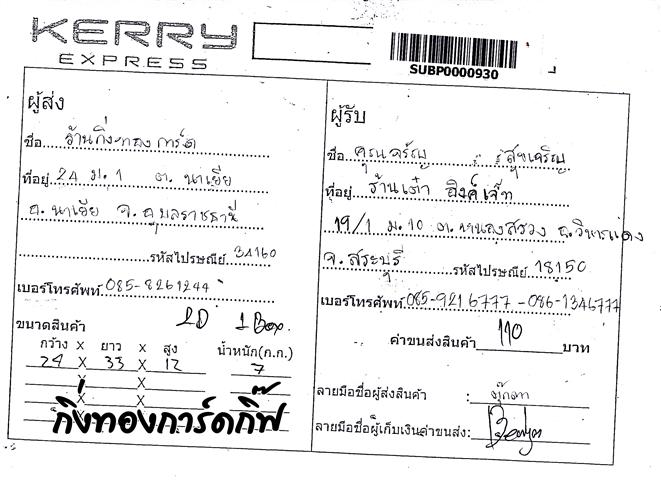 KERRY
EXPRESS
SUBP0000930
ผู้ส่ง
ชื่อ ร้านกิ่งทองการ์ด
ที่อยู่ 24 ม.1 ต. นาเยีย
อ. นาเยีย จ. อุบลราชธานี
รหัสไปรษณีย์ 34160
เบอร์โทรศัพท์ 085-8261244
ขนาดสินค้า 2D 1 Box
กว้าง x ยาว x สูง น้ำหนัก(ก.ก.)
24 X 33 X 12 7
X X
X
กิ่งทองการ์ดกิ๊ฟ
ผู้รับ
ชื่อ คุณจรัญ สุขเจริญ
ที่อยู่ ร้านเต๋า อิงค์เจ็ท
19/1 ม.10 ต.หนองสรวง อ.วิหารแดง
จ. สระบุรี รหัสไปรษณีย์ 18150
เบอร์โทรศัพท์ 085-9216777-086-1346777
ค่าขนส่งสินค้า 110 บาท
ลายมือชื่อผู้ส่งสินค้า : ตุ๊กตา
ลายมือชื่อผู้เก็บเงินค่าขนส่ง: